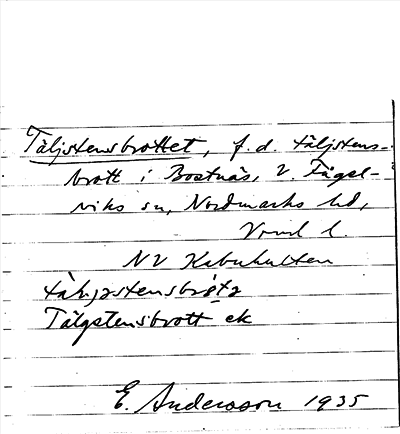 Täljstensbrottet, f.d. täljstens-
brott i Bostnäs, V. Fågel-
viks sn, Nordmarks hd,
Vrml l.
NV Kabukulten
Tälgstensbrott ek
E. Andersson 1935